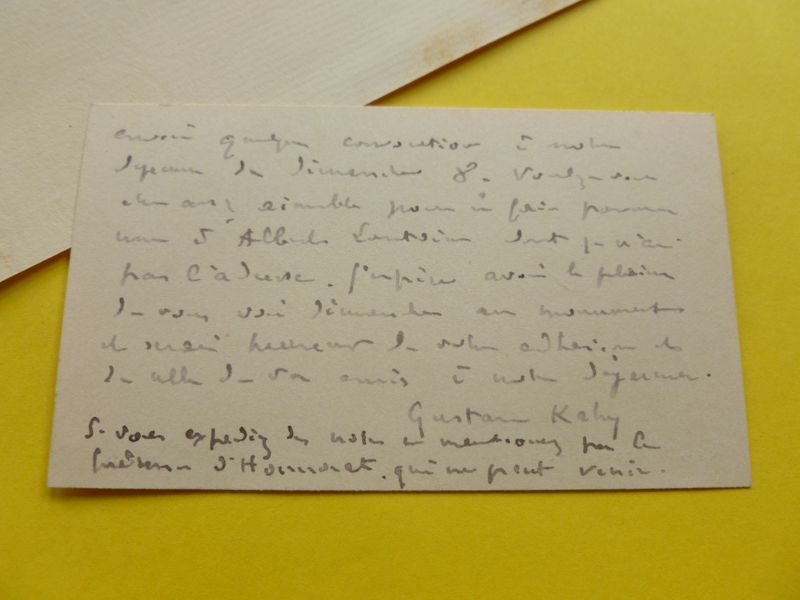 envoie quelques convocations à notre
déjeuner du dimanche 8. Voulez-vous
être assez aimable pour
d'Albert dont je n'ai
pas l'adresse. J'espère avoir le plaisir
de vous voir dimanche au monument
et serai heureux de votre adhésion et
de celle de vos amis à notre déjeuner.
Gustave Kahn
Si vous expédiez des notes ne mentionnez pas la
présence d'Honnorat, qui ne peut venir.